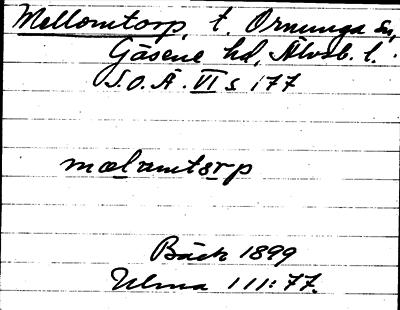 Mellomtorp, t. Ornunga sn,
Gäsene hd, Älvsb. l.
S.O.Ä. VI s 177
mælamtorp
Bäck 1899
Ulma 111:77.